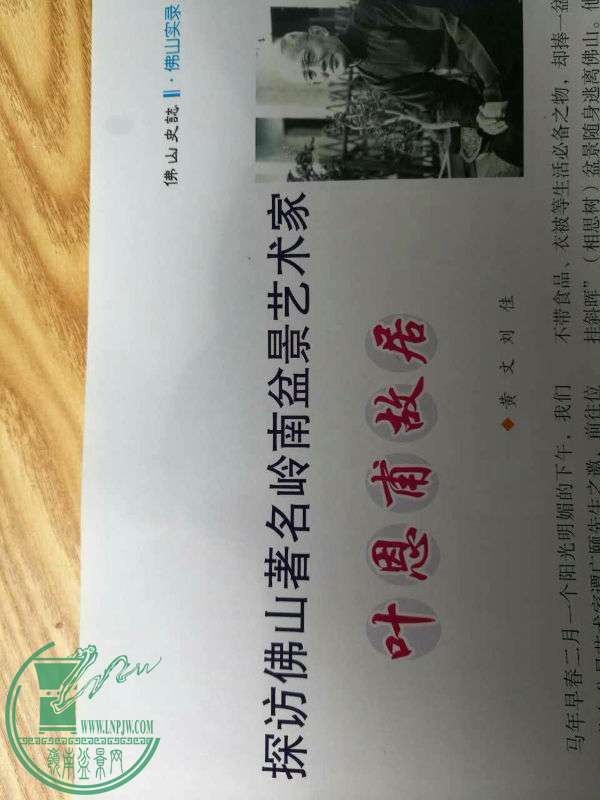 佛山史誌 ‖·佛山实录
探访佛山著名岭南盆景艺术家
叶恩甫故居
◆ 黄文 刘佳
马年早春二月一个阳光明媚的下午，我们
前往位
不带食品、衣被等生活必备之物，却捧一盆
挂斜晖”（相思树）盆景随身逃离佛山。
WWW.LNPJW.COM
嶺南盆景网